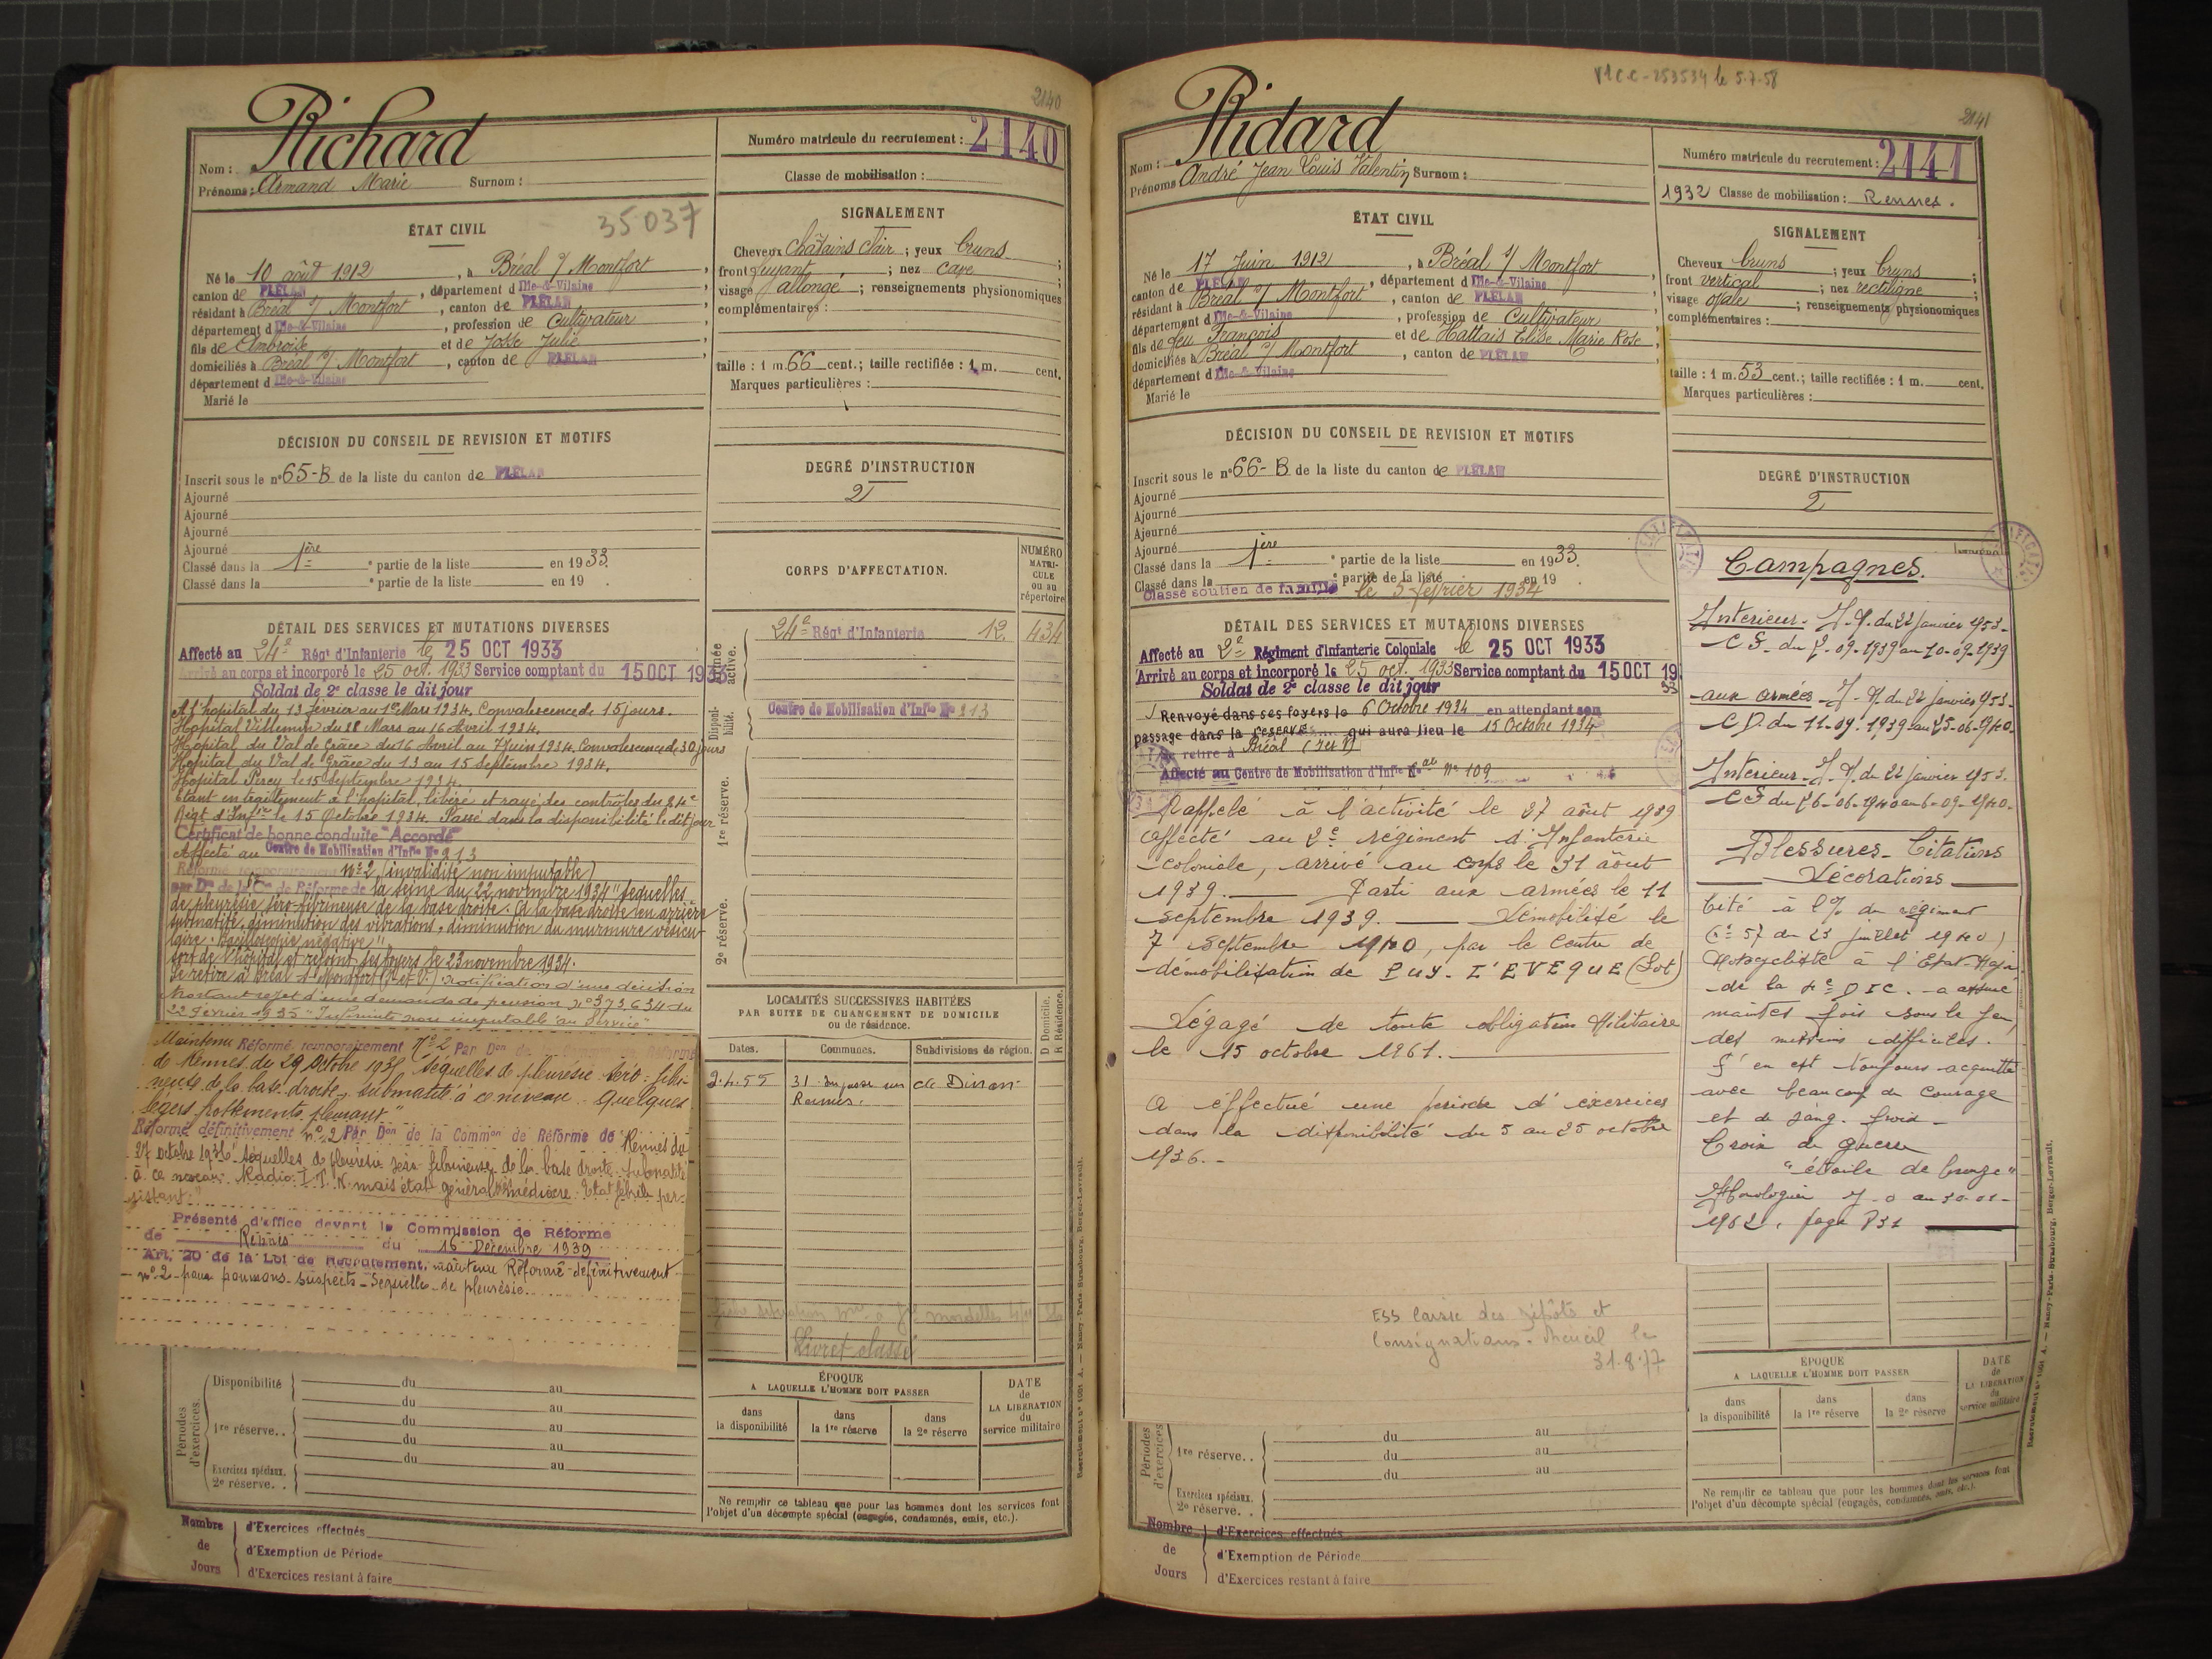 2140
Richard
Nom :
Prénoms : Armand Marie Surnom :
Numéro matricule du recrutement : 2140
Classe de mobilisation :
ÉTAT CIVIL
35037
Né le 10 août 1912, à Bréal s/ Montfort,
canton de PLÉLAN, département d Ille-&-Vilaine
résidant à Bréal s/ Montfort, canton de PLÉLAN
département d Ille-&-Vilaine, profession de Cultivateur,
fils de Ambroise et de Josse Julie
domiciliés à Bréal s/ Montfort, canton de PLÉLAN,
département d Ille-&-Vilaine
Marié le
SIGNALEMENT
Cheveux châtains clair ; yeux bruns ;
front fuyant ; nez cave ;
visage allongé ; renseignements physionomiques
complémentaires :
taille : 1 m. 66 cent. ; taille rectifiée : 1 m. cent.
Marques particulières :
DÉCISION DU CONSEIL DE REVISION ET MOTIFS
Inscrit sous le n° 65-B de la liste du canton de PLÉLAN
Ajourné
Ajourné
Ajourné
Ajourné
Classé dans la 1ère partie de la liste en 1933.
Classé dans la e partie de la liste en 19 .
DEGRÉ D'INSTRUCTION
2
CORPS D'AFFECTATION.
NUMÉRO MATRI-CULE OU AU répertoire
Armée active.
24e Régt d'Infanterie 12. 434
Disponi-bilité.
Centre de Mobilisation d'Infie N° 213
1re réserve.
2e réserve.
DÉTAIL DES SERVICES ET MUTATIONS DIVERSES
Affecté au 24e Régt d'Infanterie le 25 OCT 1933
Arrivé au corps et incorporé le 25 oct. 1933 Service comptant du 15 OCT 1933
Soldat de 2e classe le dit jour
A l'hopital du 13 février au 1er Mars 1934. Convalescence de 15 jours.
Hopital Villemin du 28 Mars au 16 Avril 1934.
Hopital du Val de Grâce du 16 Avril au 7 Juin 1934. Convalescence de 30 jours
Hopital du Val de Grâce du 13 au 15 Septembre 1934.
Hopital Percy le 15 Septembre 1934.
Etant en traitement à l'hopital, libéré et rayé des contrôles du 24e
Régt d'Infie le 15 Octobre 1934. Passé dans la disponibilité le dit jour
Certificat de bonne conduite "Accordé"
Affecté au Centre de Mobilisation d'Infie N° 213
Réformé temporairement N° 2 (invalidité non imputable)
par Don de la Con de Réforme de la Seine du 22 novembre 1934 "Séquelles
de pleurésie séro-fibrineuse de la base droite. A la base droite en arrière
submatité, diminution des vibrations, diminution du murmure vésicu-
laire. Bacilloscopie négative"
Sort de l'hôpital et rejoint ses foyers le 23 novembre 1934.
Se retire à Bréal s/ Montfort (I. et V.) Notification d'une décision
portant rejet d'une demande de pension n° 373.634 du
22 février 1935 "Infirmité non imputable au Service"
Maintenu Réformé temporairement N° 2 Par Don de la Common de Réforme
de Rennes du 29 Octobre 1935 "Séquelles de pleurésie séro-fibri-
neuse de la base droite, submatité à ce niveau. Quelques
légers frottements pleuraux"
Réformé définitivement n° 2 Par Don de la Common de Réforme de Rennes du
27 octobre 1936 "Séquelles de pleurésie séro fibrineuse de la base droite. Submatité
à ce niveau. Radio: I.P.N. mais état général médiocre. Etat fébrile per-
sistant."
Présenté d'office devant la Commission de Réforme
de Rennes du 16 Décembre 1939
Art. 20 de la Loi de Recrutement, maintenu Réformé définitivement
n° 2 pour poumons suspects - Séquelles de pleurésie.
LOCALITÉS SUCCESSIVES HABITÉES
PAR SUITE DE CHANGEMENT DE DOMICILE
ou de résidence.
D Domicile. R Résidence.
Dates. Communes. Subdivisions de région.
2.4.55 31 Impasse rue de Dinan.
Rennes.
Livret classé
ÉPOQUE
A LAQUELLE L'HOMME DOIT PASSER
dans la disponibilité dans la 1re réserve dans la 2e réserve
DATE de LA LIBÉRATION du service militaire
Ne remplir ce tableau que pour les hommes dont les services font
l'objet d'un décompte spécial (engagés, condamnés, omis, etc.).
Périodes d'exercices.
Disponibilité du au
du au
1re réserve.. du au
du au
du au
Exercices spéciaux.
2e réserve. .
Nombre de Jours
d'Exercices effectués
d'Exemption de Période
d'Exercices restant à faire
Recrutement n° 1021 A. — Nancy-Paris-Strasbourg, Berger-Levrault.
VICC-253534 le 5.7.58
2141
Ridard
Nom :
Prénoms André Jean Louis Valentin Surnom :
Numéro matricule du recrutement : 2141
1932 Classe de mobilisation : Rennes.
ÉTAT CIVIL
Né le 17 Juin 1912, à Bréal s/ Montfort,
canton de PLÉLAN, département d Ille-&-Vilaine
résidant à Bréal s/ Montfort, canton de PLÉLAN
département d Ille-&-Vilaine, profession de Cultivateur,
fils de feu François et de Hattais Elise Marie Rose
domiciliés à Bréal s/ Montfort, canton de PLÉLAN,
département d Ille-&-Vilaine
Marié le
SIGNALEMENT
Cheveux bruns ; yeux bruns ;
front vertical ; nez rectiligne ;
visage ovale ; renseignements physionomiques
complémentaires :
taille : 1 m. 53 cent. ; taille rectifiée : 1 m. cent.
Marques particulières :
DÉCISION DU CONSEIL DE REVISION ET MOTIFS
Inscrit sous le n° 66-B de la liste du canton de PLÉLAN
Ajourné
Ajourné
Ajourné
Ajourné
Classé dans la 1ère partie de la liste en 1933.
Classé dans la e partie de la liste en 19 .
Classé soutien de famille le 5 février 1934
DEGRÉ D'INSTRUCTION
2
DÉTAIL DES SERVICES ET MUTATIONS DIVERSES
Affecté au 2e Régiment d'Infanterie Coloniale le 25 OCT 1933
Arrivé au corps et incorporé le 25 oct. 1933 Service comptant du 15 OCT 1933
Soldat de 2e classe le dit jour
Renvoyé dans ses foyers le 6 Octobre 1934 en attendant son
passage dans la réserve qui aura lieu le 15 Octobre 1934
Se retire à Bréal (I et V)
Affecté au Centre de Mobilisation d'Infie Nale N° 109
Rappelé à l'activité le 27 août 1939
affecté au 2e régiment d'Infanterie
coloniale, arrivé au corps le 31 août
1939. Parti aux armées le 11
septembre 1939. Démobilisé le
7 septembre 1940, par le Centre de
démobilisation de PUY-L'EVEQUE (Lot)
Dégagé de toute obligation Militaire
le 15 octobre 1961.
A éffectué une période d'exercices
dans la disponibilité du 5 au 25 octobre
1936.
ESS Caisse des Dépôts et
Consignations - Arcueil le
31.8.77
Campagnes.
Interieur - J.O. du 22 janvier 1953 -
C S. du 2-09-1939 au 10-09-1939
aux armées - J.O. du 22 janvier 1953 -
C D. du 11-09-1939 au 25-06-1940.
Interieur - J.O. du 22 janvier 1953.
CS du 26-06-1940 au 6-09-1940.
Blessures - Citations
Décorations
Cité à l'O/ du régiment
(n° 57 du 23 juillet 1940)
Motocycliste à l'Etat-Major
de la 4e DIC. a assuré
maintes fois sous le feu,
des missions difficiles.
S'en est toujours acquitté
avec beaucoup de courage
et de sang-froid -
Croix de guerre
"étoile de bronze"
Homologuée J.O au 30-01-
1962, page 831
ÉPOQUE
A LAQUELLE L'HOMME DOIT PASSER
dans la disponibilité dans la 1re réserve dans la 2e réserve
DATE de LA LIBÉRATION du service militaire
Ne remplir ce tableau que pour les hommes dont les services font
l'objet d'un décompte spécial (engagés, condamnés, omis, etc.).
Périodes d'exercices
1re réserve.. du au
du au
du au
Exercices spéciaux.
2e réserve. .
Nombre de Jours
d'Exercices effectués
d'Exemption de Période
d'Exercices restant à faire
Recrutement n° 1021 A. — Nancy-Paris-Strasbourg, Berger-Levrault.